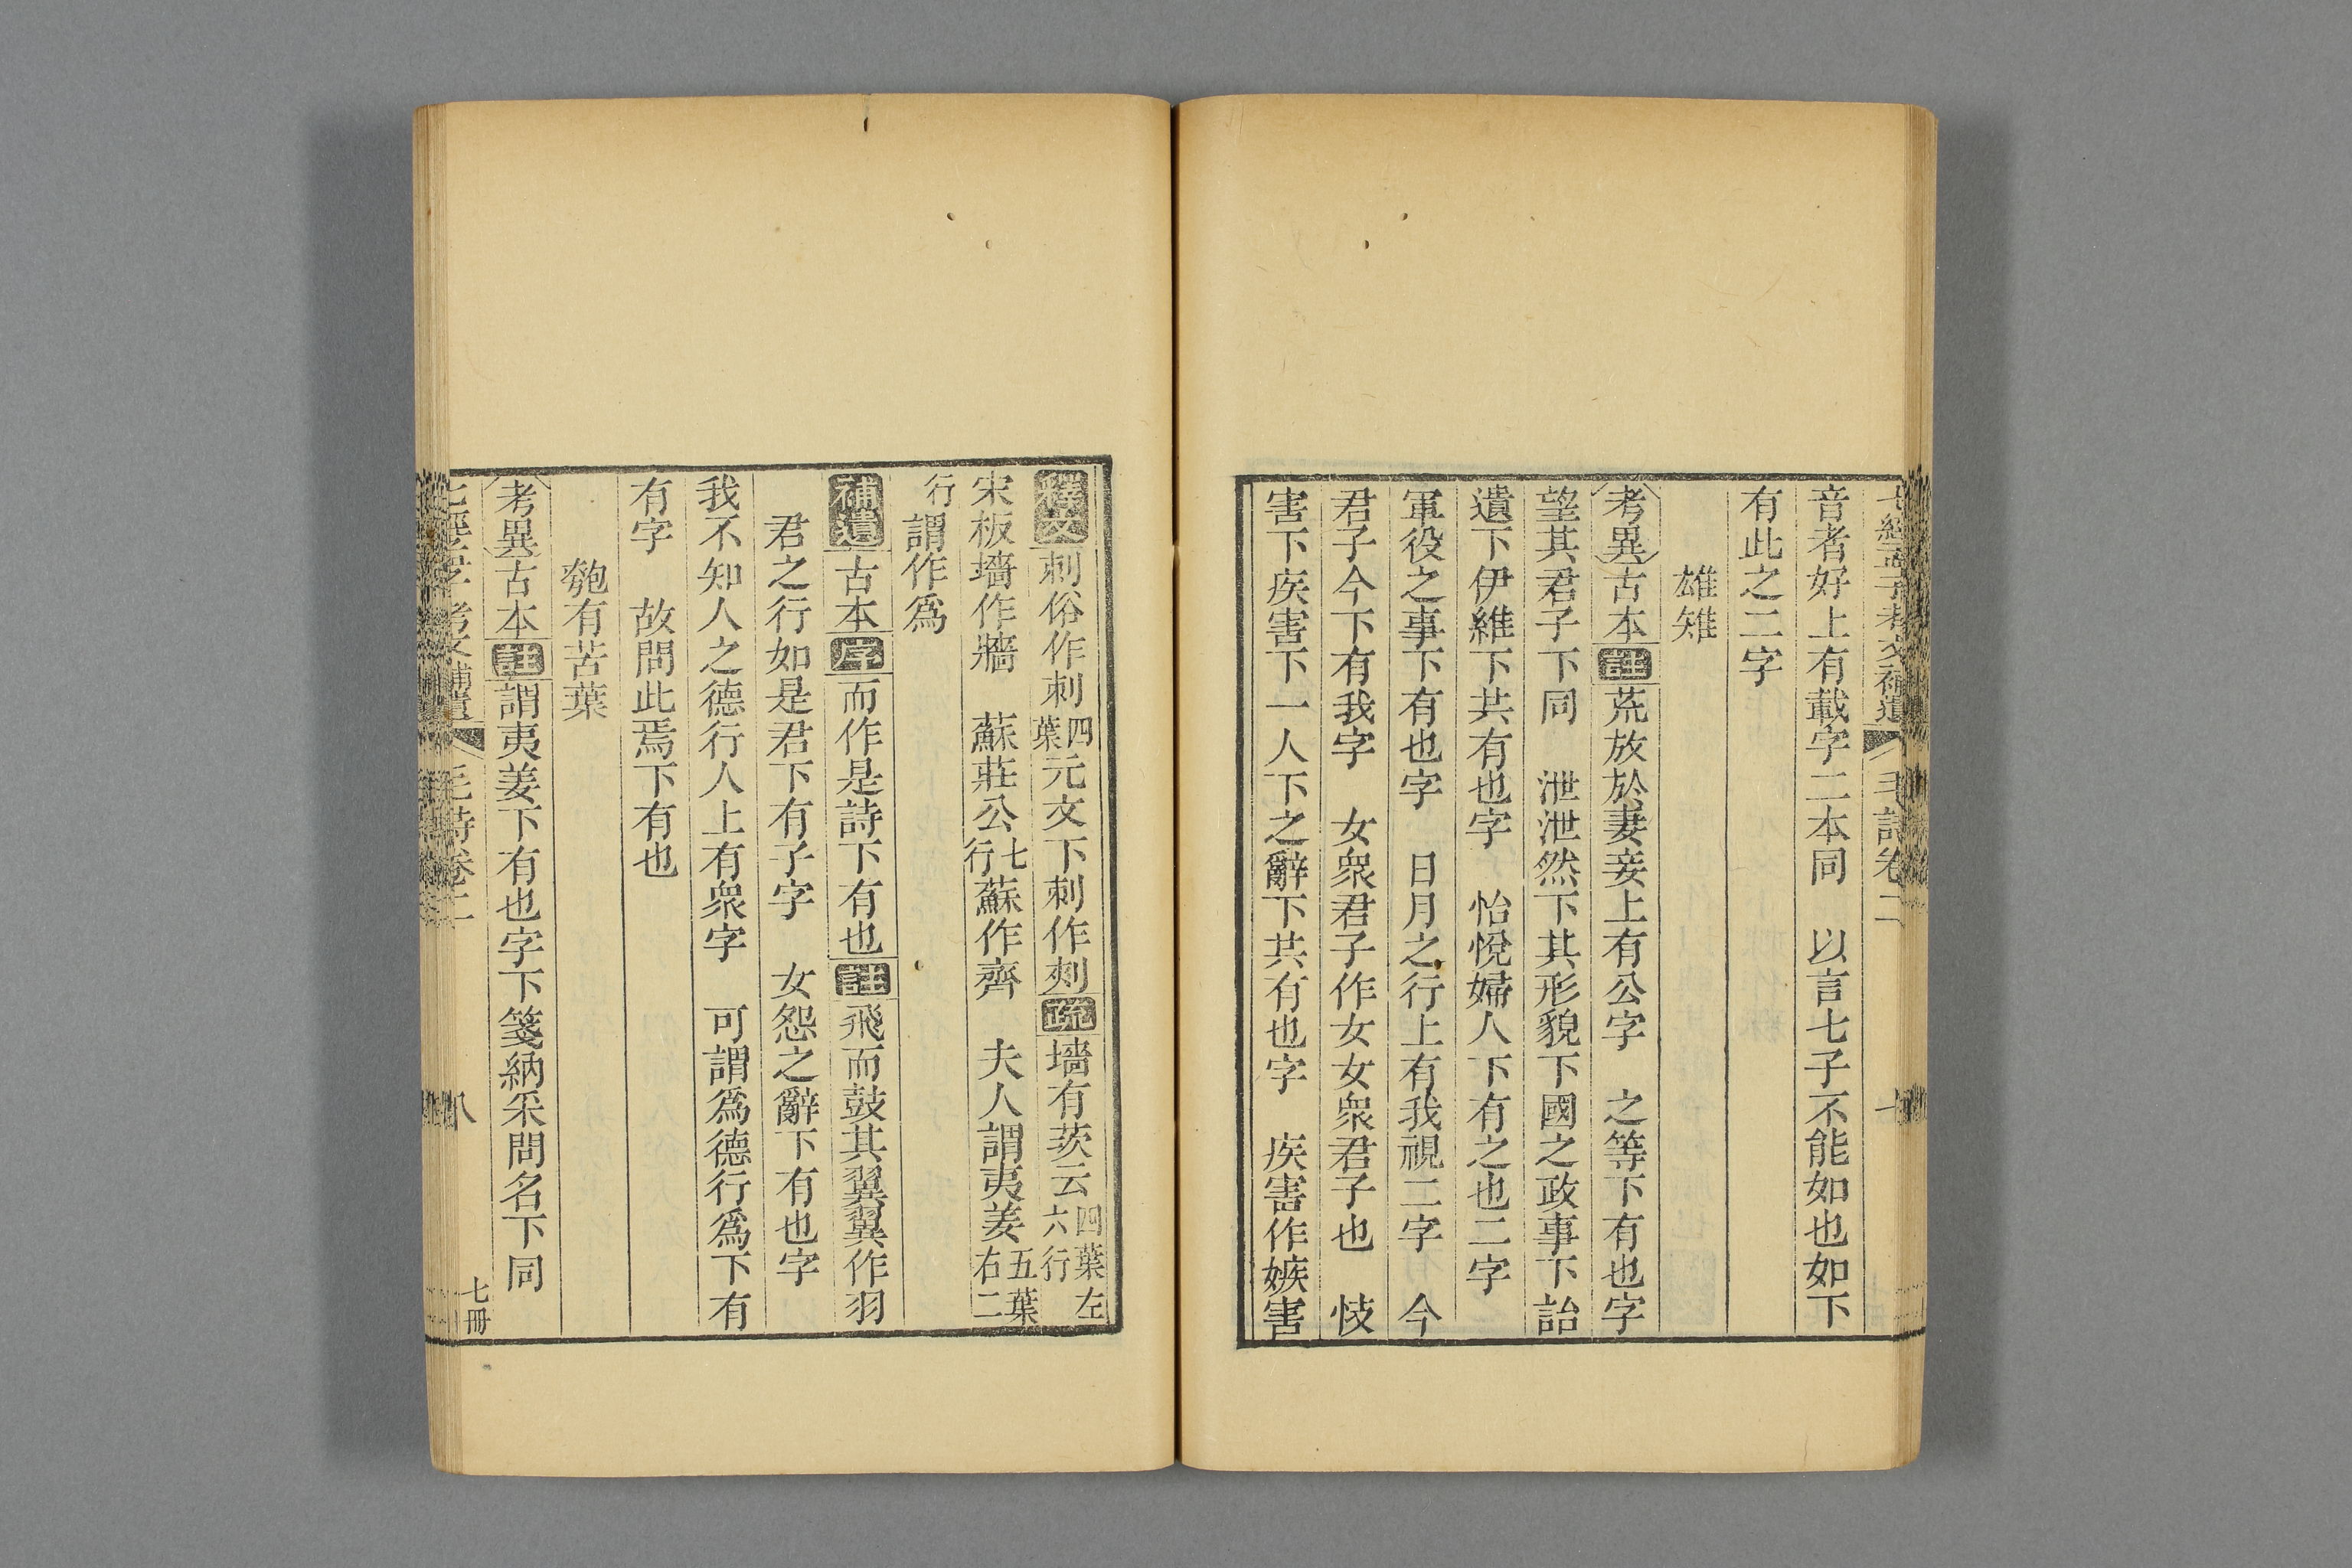 七經孟子考文補遺 毛詩卷二 七
音者好上有載字二本同 以言七子不能如也如下
有此之二字
雄雉
考異古本註荒放於妻妾上有公字 之等下有也字
望其君子下同 泄泄然下其形貌下國之政事下詒
遺下伊維下共有也字 怡悅婦人下有之也二字
軍役之事下有也字 日月之行上有我視二字 今
君子今下有我字 女衆君子作女女衆君子也 忮
害下疾害下一人下之辭下共有也字 疾害作嫉害
釋文刺俗作刾四葉元文下刺作刾疏墻有茨云四葉左六行
宋板墻作牆 蘇莊公七行蘇作齊 夫人謂夷姜五葉右二
行謂作爲
補遺古本序而作是詩下有也註飛而鼓其翼翼作羽
君之行如是君下有子字 女怨之辭下有也字
我不知人之德行人上有衆字 可謂爲德行爲下有
有字 故問此焉下有也
匏有苦葉
考異古本註謂夷姜下有也字下箋納采問名下同
毛詩卷二 八 七冊